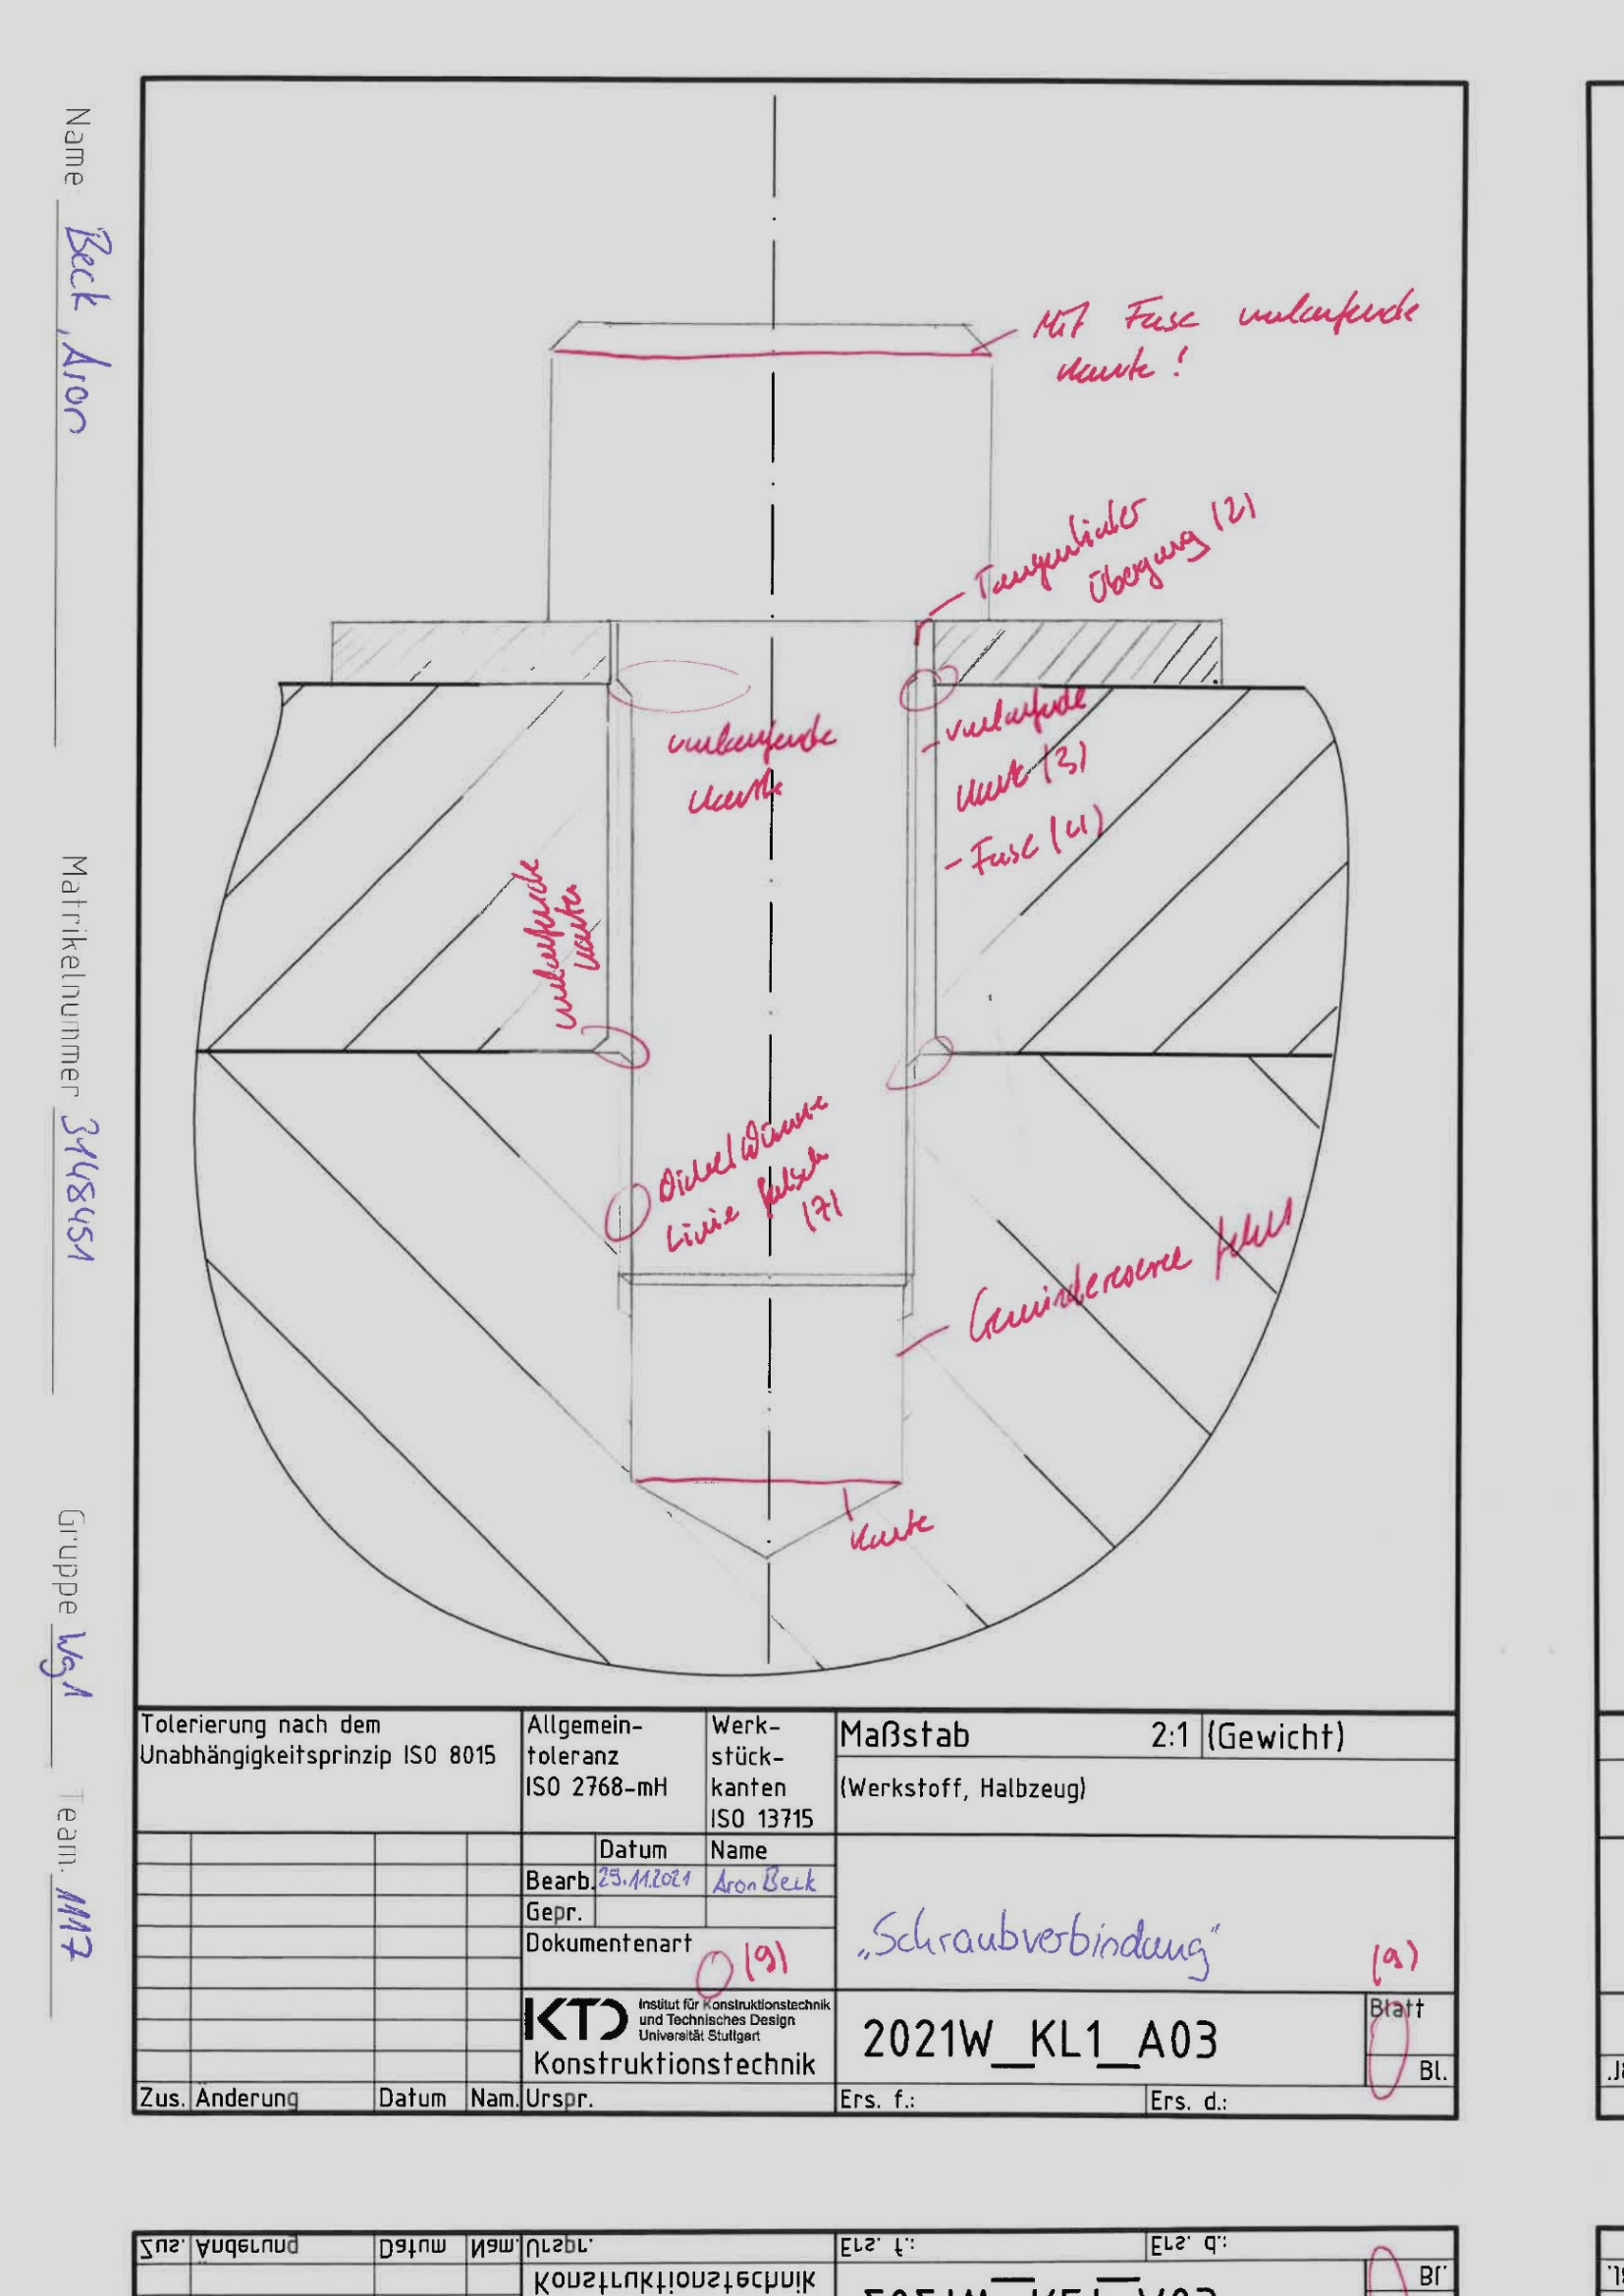 Name: Beck, Aron
Matrikelnummer 3148451
Gruppe Wg1
Team: 1117
Mit Fase umlaufende
Kante!
Tangentialer
Übergang (2)
umlaufende
Kante
- umlaufende
Kante (3)
- Fase (4)
umlaufende
Kanten
Dicke/Dünne
Linie falsch
(7)
Gewindereserve fehlt
Kante
Tolerierung nach dem
Unabhängigkeitsprinzip ISO 8015
Allgemein-
toleranz
ISO 2768-mH
Werk-
stück-
kanten
ISO 13715
Maßstab 2:1 (Gewicht)
(Werkstoff, Halbzeug)
Datum Name
Bearb. 29.11.2021 Aron Beck
Gepr.
Dokumentenart
(9)
„Schraubverbindung"
(9)
KTD Institut für Konstruktionstechnik
und Technisches Design
Universität Stuttgart
Konstruktionstechnik
2021W_KL1_A03
Blatt
Bl.
Zus. Änderung Datum Nam. Urspr. Ers. f.: Ers. d.:
Zus. Änderung Datum Nam. Urspr. Ers. f.: Ers. d.:
Konstruktionstechnik
2021W_KL1_A03
Bl.